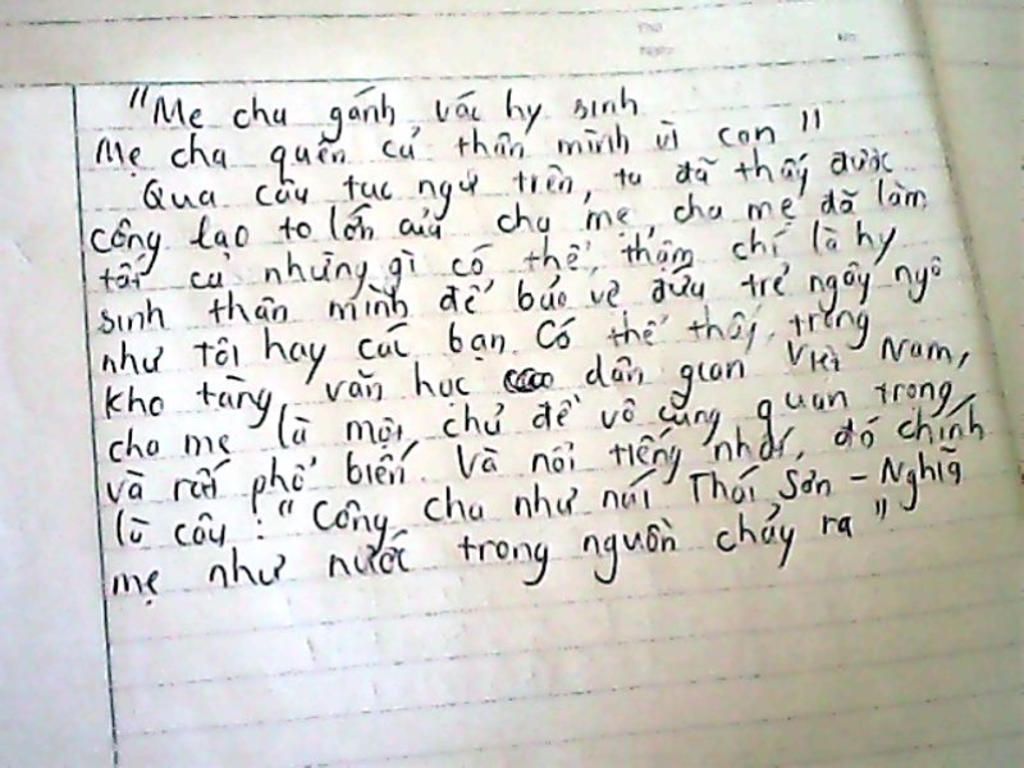 "Mẹ cha gánh vác hy sinh
Mẹ cha quên cả thân mình vì con"
Qua câu tục ngữ trên, ta đã thấy được
công lao to lớn của cha mẹ, cha mẹ đã làm
tất cả những gì có thể, thậm chí là hy
sinh thân mình để bảo vệ đứa trẻ ngây ngô
như tôi hay các bạn. Có thể thấy, trong
kho tàng văn học dân gian Việt Nam,
cha mẹ là một chủ đề vô cùng quan trọng
và rất phổ biến. Và nổi tiếng nhất, đó chính
là câu: "Công cha như núi Thái Sơn - Nghĩa
mẹ như nước trong nguồn chảy ra"